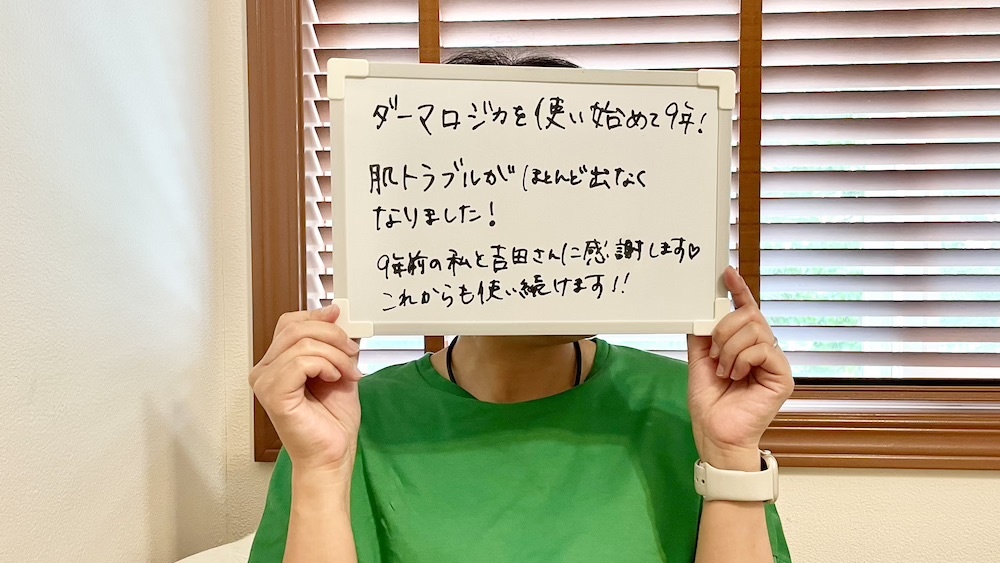 ダーマロジカを使い始めて9年!
肌トラブルがほとんど出なく
なりました!
9年前の私と吉田さんに感謝します♡
これからも使い続けます!!